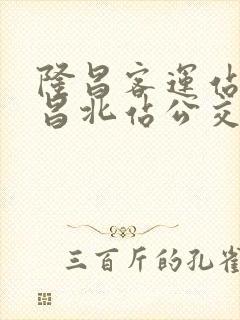 隆昌客運佔
昌北佔公交
三百斤的孔雀